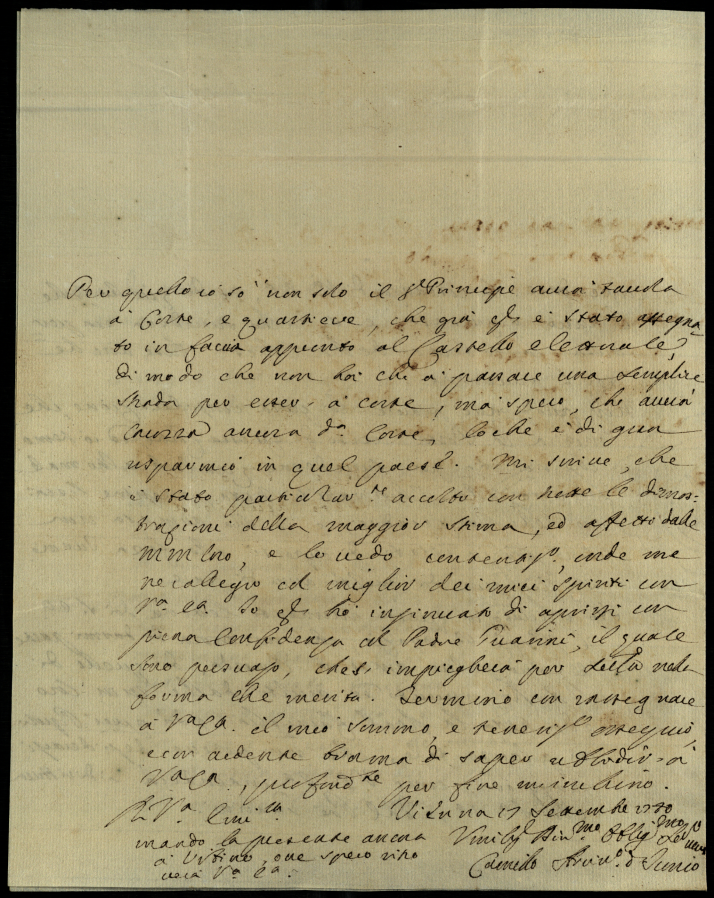 Per quello io sò non solo il Sr Principe avrà tavola
à Corte, e quartiere, che già gli è stato assegna-
to in faccia appunto al Castello elettorale,
di modo che non hà che à passare una semplice
strada per esser à corte, mà spero, che avrà
carozza ancora da Corte, loche è di gran
risparmio in quel paese. Mi scrive, che
è stato particolarte accolto con tutte le dimos-
trazioni della maggior stima, ed affetto dalle
MM loro, e lo vedo contentismo, onde me
ne rallegro col miglior dei miei spiriti con
Va Ea. Io gli hò insinuato di aprirsi con
piena Confidenza col Padre Guarini, il quale
sono persuaso, che s'impiegherà per della nella
forma che merita. Termino con rassegnare
à Va Ea. il mio sommo, e ossequio,
e con ardente brama di saper ubbidir à
Va Ea., profondte per fine m'inchino.
Di Va Vienna 17 Settembre
mando la presente ancora Umilmo Dinmo Obbligmo
à Urbino, ove spero rice
verà Va Ea. Camillo